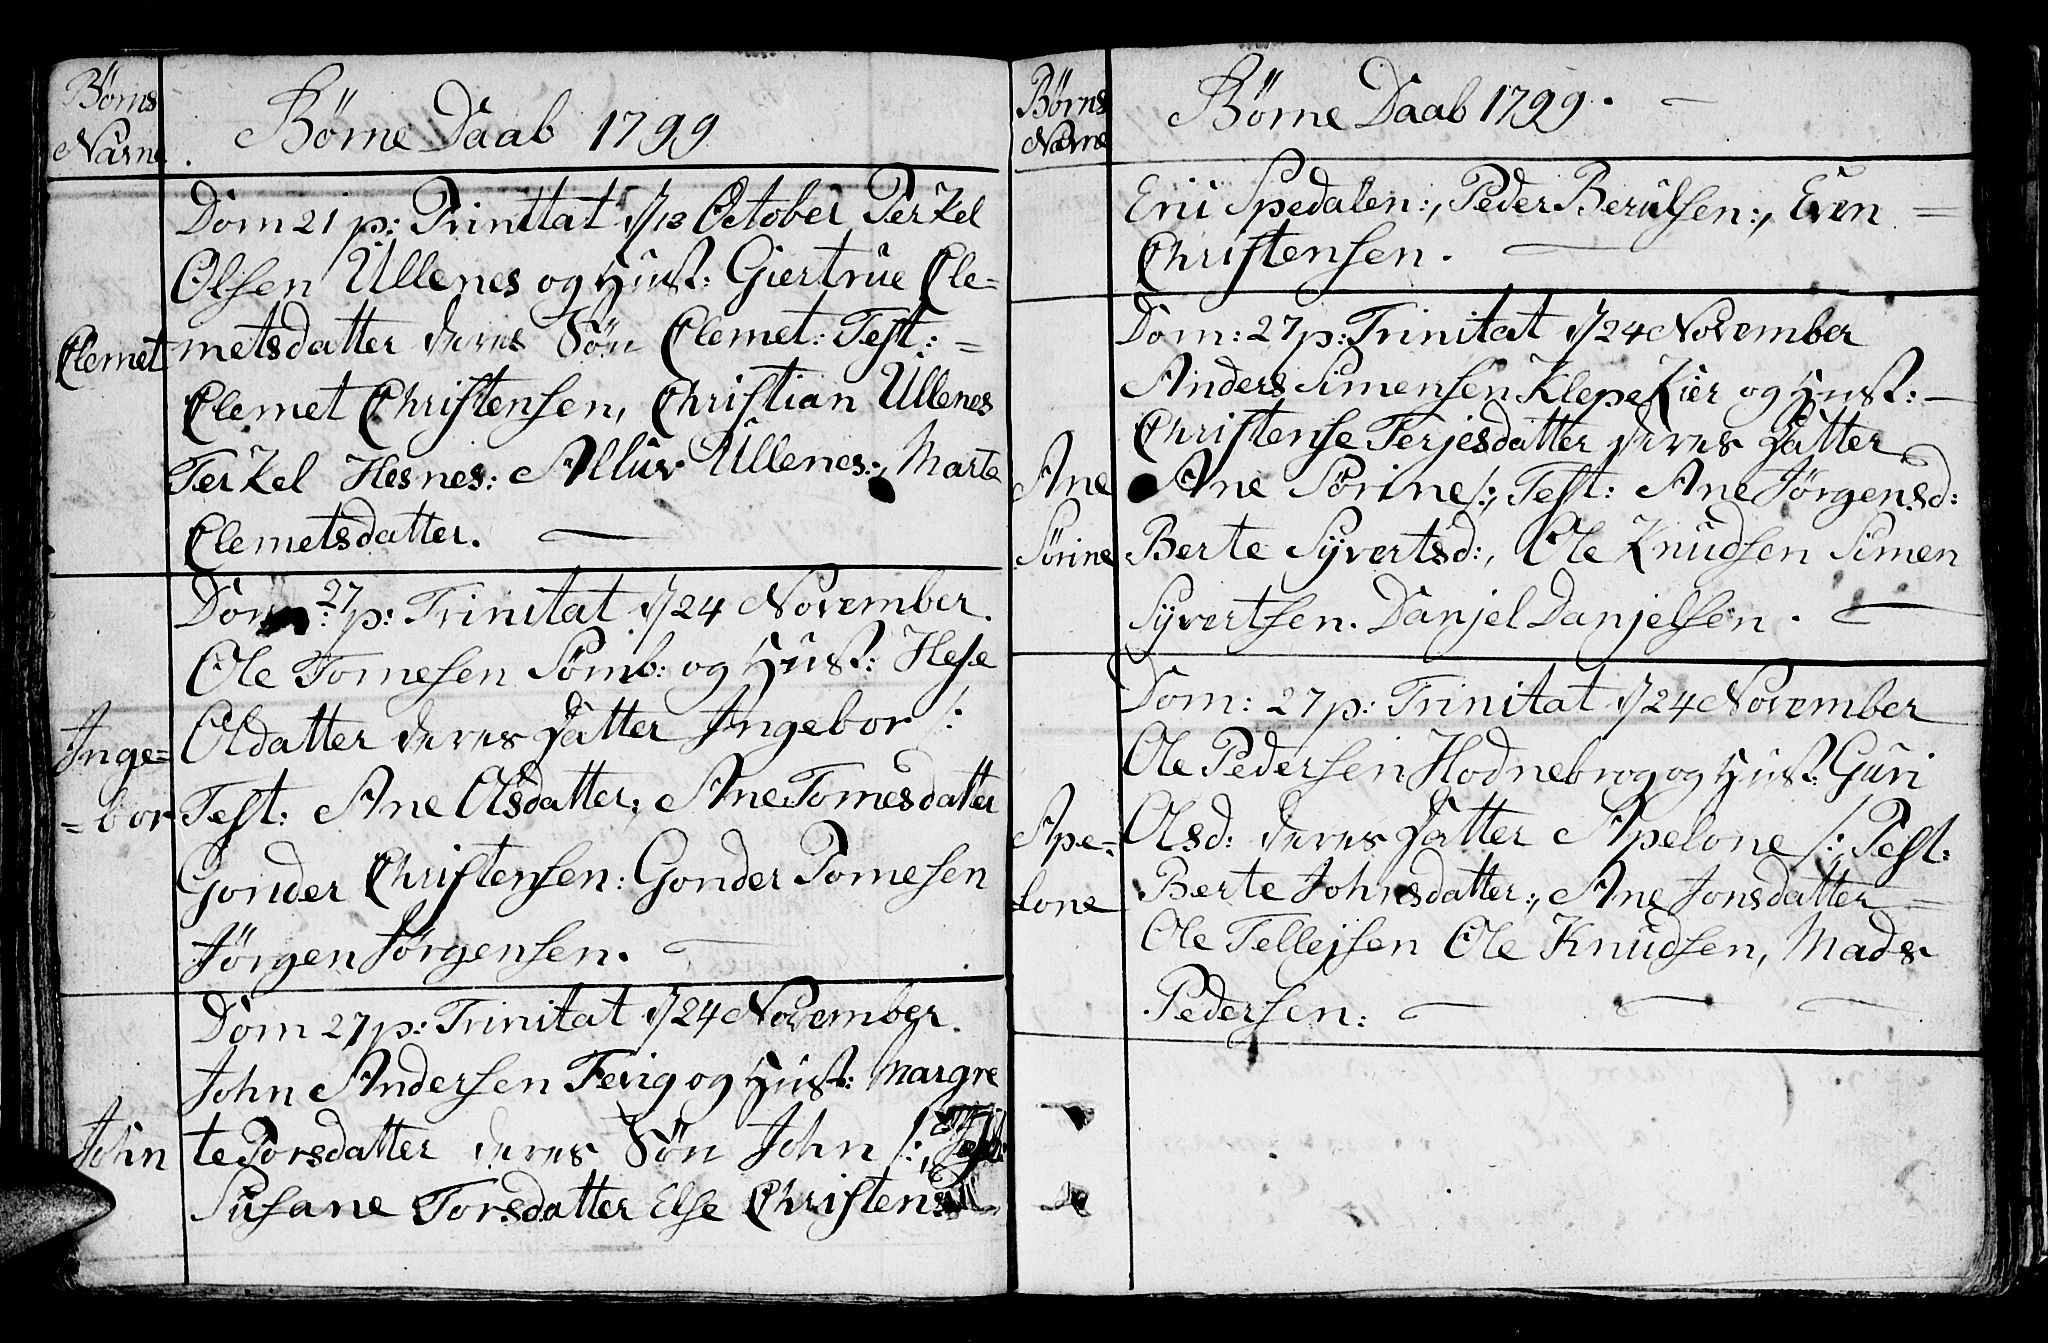 Børns
Navne
Børne Daab 1799
Dom 21 p: Trinitat d/13 October Terkel
Olsen Ullenes og Hust: Giertrue Cle-
Clemet
metsdatter deres Søn Clemet: Test: =
Clemet Christensen, Christian Ullenes
Terkel Hesnes: Ullenes:, Marte
Clemetsdatter.
Dom: 27 p: Trinitat d/24 November.
Ole Tomesen Sömb: og Hust:
Inge=
=bor
Oldatter deres Datter Ingebor /:
Test: Ane Olsdatter; Ane Tomesdatter
Gonder Christensen: Gonder Tomesen
Jørgen Jørgensen.
Dom 27 p: Trinitat d/24 November.
John Andersen Fevig og Hust: Margre
John
te Torsdatter deres Søn John /: Test:
Susane Torsdatter Else Christens
Børns
Navne
Børne Daab 1799.
Spedalen:, Peder Berulsen:, Even =
Christensen.
Dom: 27 p: Trinitat d/24 November
Anders Simensen KlepeKier og Hust:
Christense Terjesdatter deres Datter
Ane
Sörine
Ane Sörine /:, Test: Ane Jørgensd:
Berte Syvertsd:, Ole Knudsen Simen
Syvertsen. Danjel Danjelsen.
Dom: 27 p: Trinitat d/24 November
Ole Pedersen Hodnebrog og Hust: Guri
Ape=
lone
Olsd: deres Datter Apelone /: Test:
Berte Johnsdatter:, Ane Jonsdatter =
Ole Tellejsen Ole Knudsen, Mads
Pedersen: